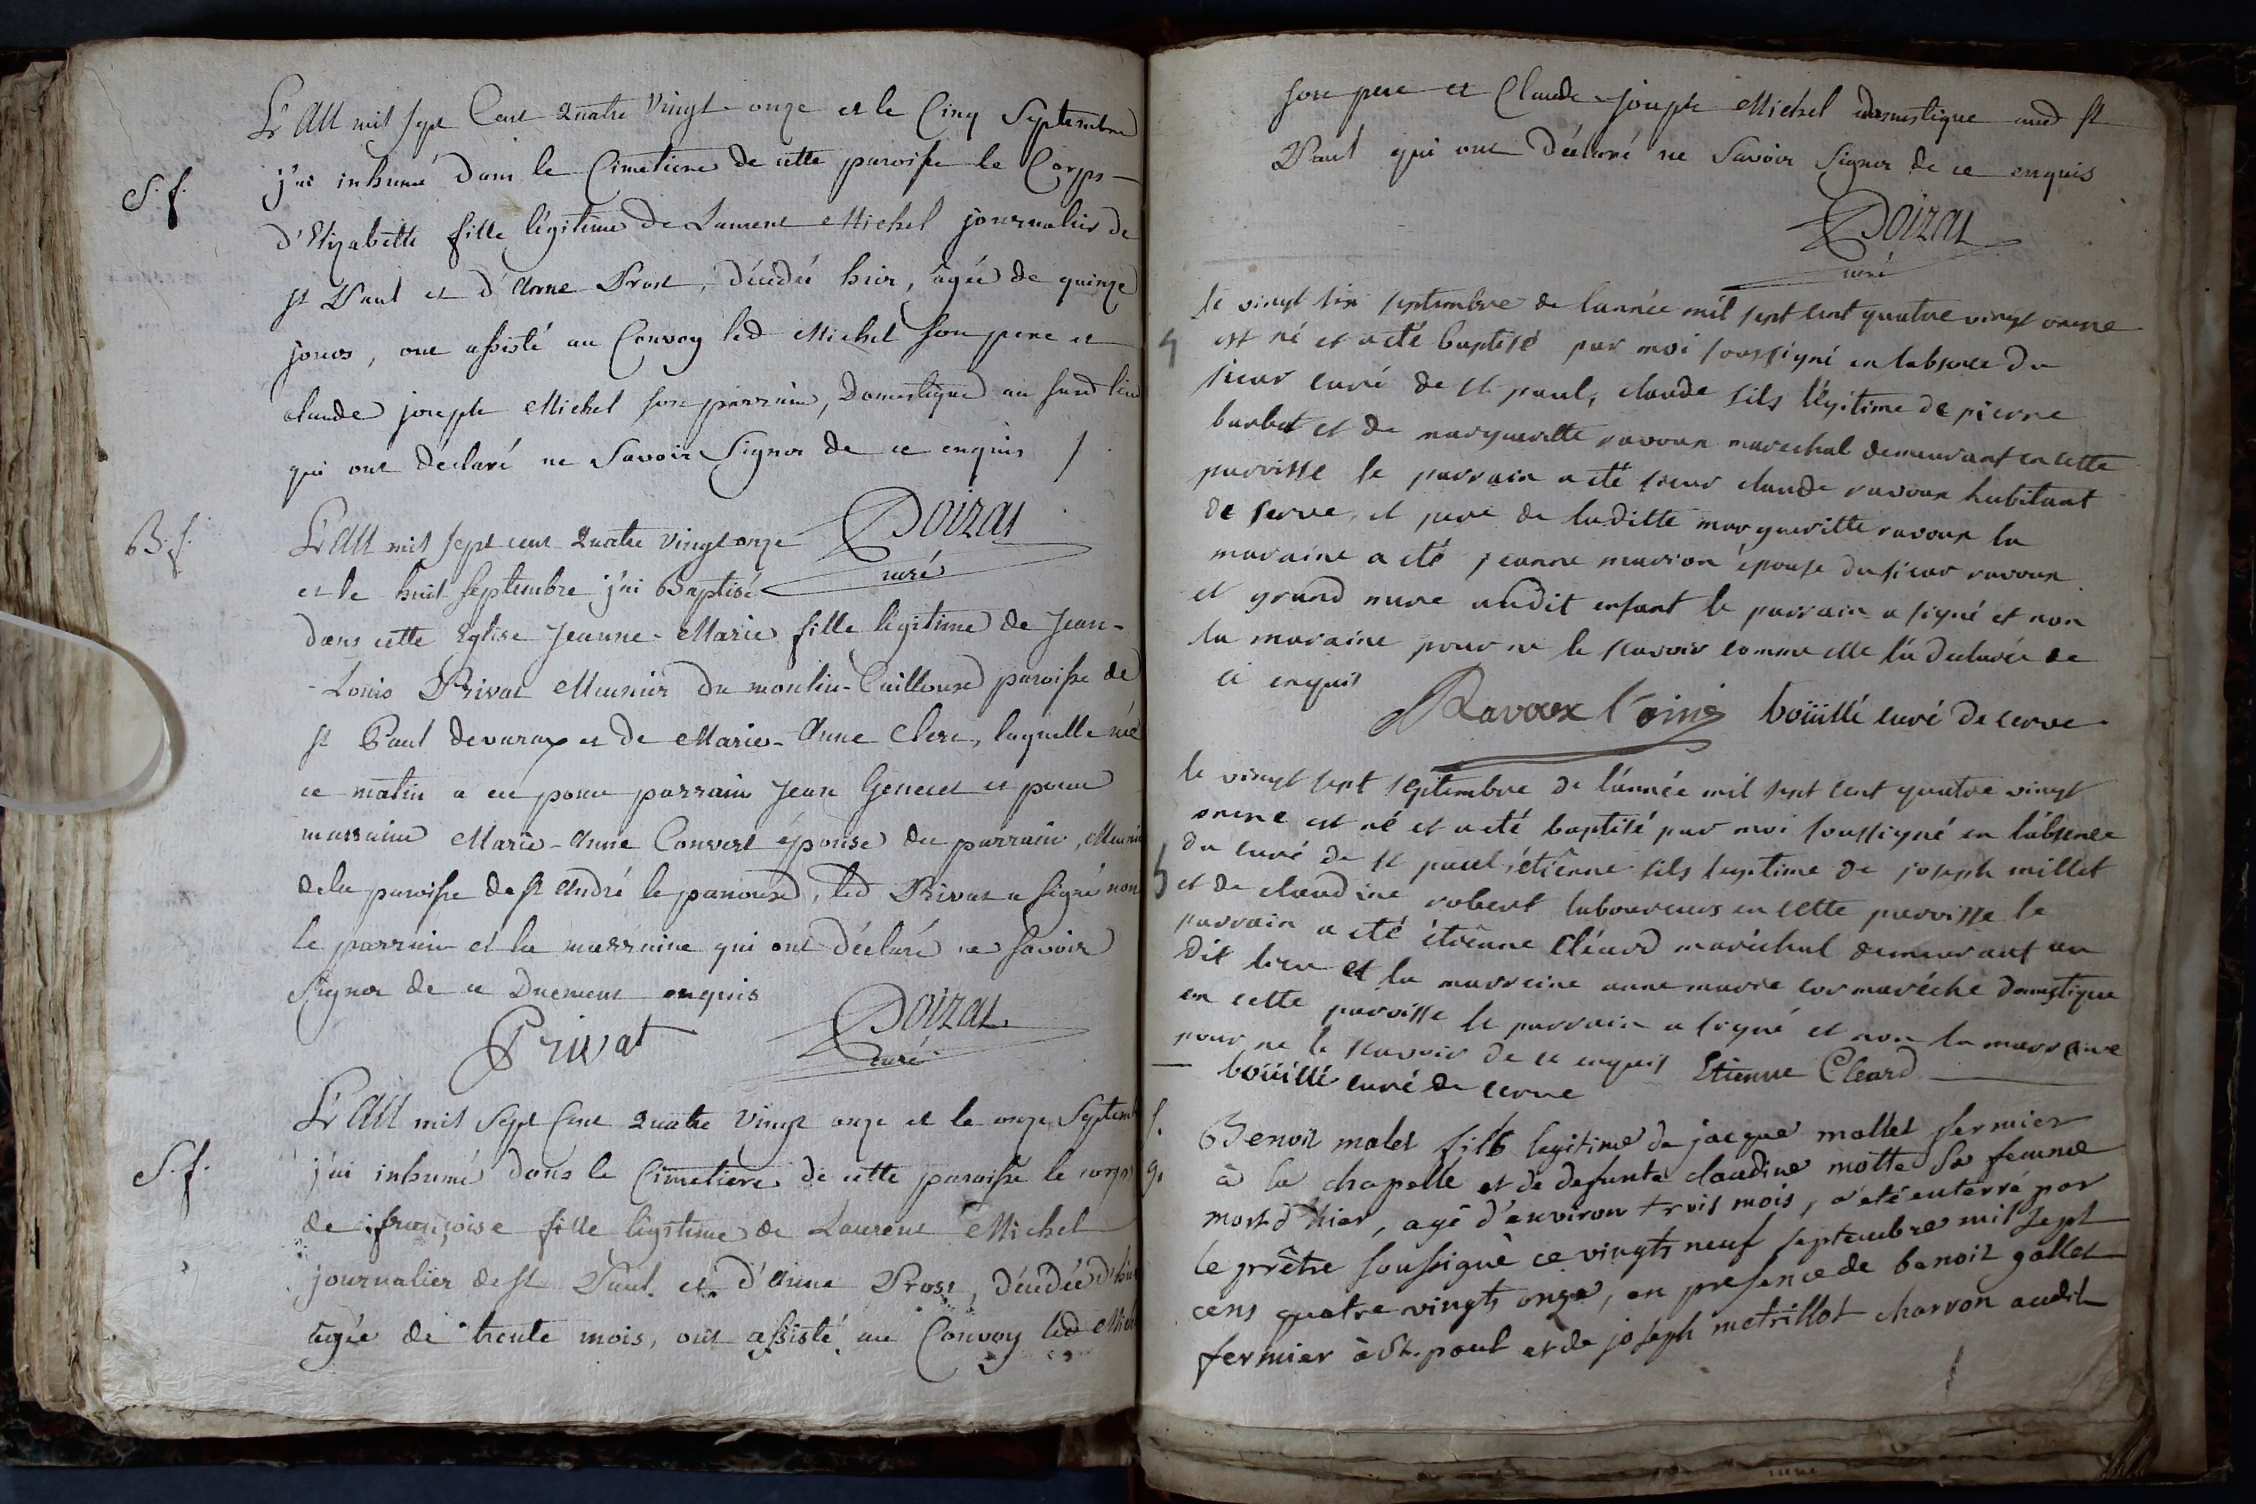 L'an mil sept Cent Quatre Vingt-onze et le Cinq Septembre
S. f.
j'ai inhumé dans le Cimetiere de cette paroisse le Corps
d'Elizabette fille légitime de Laurent Michel journalier de
St Paul et d'Anne Prost, décédée hier, agée de quinze
jours, ont assisté au Convoy led Michel son pere et
claude joseph Michel son parrain, Domestique au susd lieu
qui ont déclaré ne Savoir Signer de ce enquis /
Doizat
curé
B. f.
L'an mil sept cent Quatre Vingt onze
et le huit Septembre j'ai Baptisé
dans cette Eglise Jeanne-Marie fille légitime de Jean-
-Louis Privat Meunier du moulin-Cailloux paroisse de
St Paul devarax et de Marie-Anne Clerc, laquelle née
ce matin a eu pour parrain Jean Genevet et pour
marraine Marie-Anne Convert épouse du parrain, Meunier
dela paroisse de St André le panoux, led Privat a signé non
le parrain et la marraine qui ont déclaré ne savoir
Signer de ce Duement enquis
Privat
Doizat
curé
L'an mil Sept Cent Quatre Vingt onze et le onze Septemb
S. f.
j'ai inhumé dans le Cimetiere de cette paroisse le corps
de françoise fille légitime de Laurent Michel
journalier de St Paul et d'Anne Prost, décédée d'hier
agée de trente mois, ont assisté au Convoy led Michel
son pere et Claude-joseph Michel domestique aud St
Paul qui ont Déclaré ne Savoir Signer de ce enquis
Doizat
curé
le vingt six septembre de l'année mil sept cent quatre vingt onne
est né et a eté baptisé par moi soussigné en l'absence du
sieur curé de st paul, claude fils légitime de pierre
barbet et de marguerite ravoux marechal demeurant en cette
paroisse le parrain a été sieur claude ravoux habitant
de serve, et pere de laditte marguerite ravoux la
maraine a eté jeanne marion épouse du sieur ravoux
et grand mere audit enfant le parrain a signé et non
la maraine pour ne le scavoir comme elle l'a declarée de
ce enquis
Ravoux l'ainé boüillé curé de cerve
le vingt sept septembre de l'année mil sept cent quatre vingt
onne est né et a eté baptisé par moi soussigné en l'absence
du curé de st paul, étienne fils legitime de joseph millet
et de claudine robert laboureurs en cette paroisse le
parrain a eté étienne cléard maréchal demeurant au
dit lieu et la marreine anne marie cormaréche domestique
en cette paroisse le parrain a signé et non la marraine
pour ne le scavoir de ce enquis Etienne Cleard
boüillé curé de cerve
S.
g.
Benoit malet fils legitime de jacque mallet fermier
à la chapelle et de defunte claudine motte sa femme
mort d'hier, agé d'environ trois mois, a été enterré par
le prêtre soussigné ce vingts neuf septembre mil sept
cens quatre vingts onze, en presence de benoit gallet
fermier à St. paul et de joseph metrillot charron audit